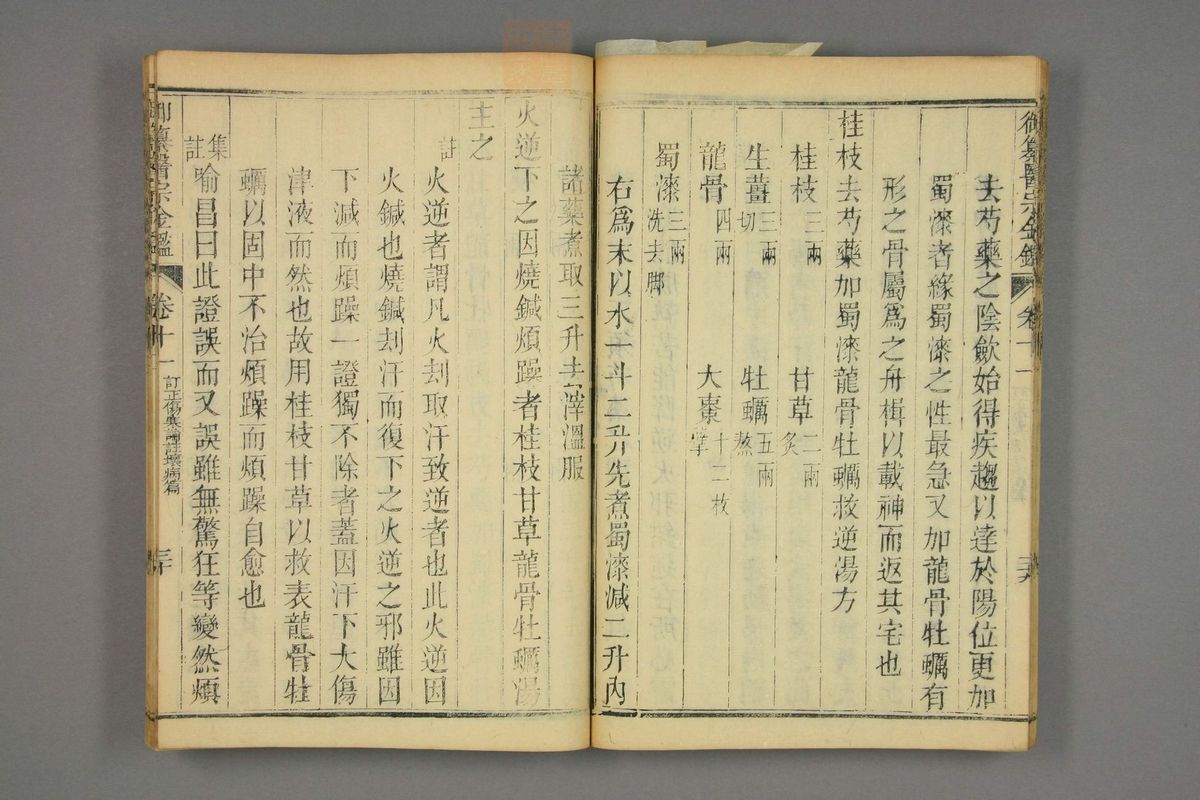 御纂醫宗金鑑 卷十一
去芍藥之陰歛始得疾趨以達於陽位更加
蜀漆者緣蜀漆之性最急又加龍骨牡蠣有
形之骨屬爲之舟楫以載神而返其宅也
桂枝去芍藥加蜀漆龍骨牡蠣救逆湯方
桂枝三兩 甘草二兩炙
生薑三兩切 牡蠣五兩熬
龍骨四兩 大棗十二枚擘
蜀漆三兩洗去脚
右爲末以水一斗二升先煮蜀漆減二升內
諸藥煮取三升去滓溫服
火逆下之因燒鍼煩躁者桂枝甘草龍骨牡蠣湯
主之
註
火逆者謂凡火刦取汗致逆者也此火逆因
火鍼也燒鍼刦汗而復下之火逆之邪雖因
下減而煩躁一證獨不除者蓋因汗下大傷
津液而然也故用桂枝甘草以救表龍骨牡
蠣以固中不治煩躁而煩躁自愈也
集註
喻昌曰此證誤而又誤雖無驚狂等變然煩
御纂醫宗金鑑 卷十一 訂正傷寒論註壞病篇 三十